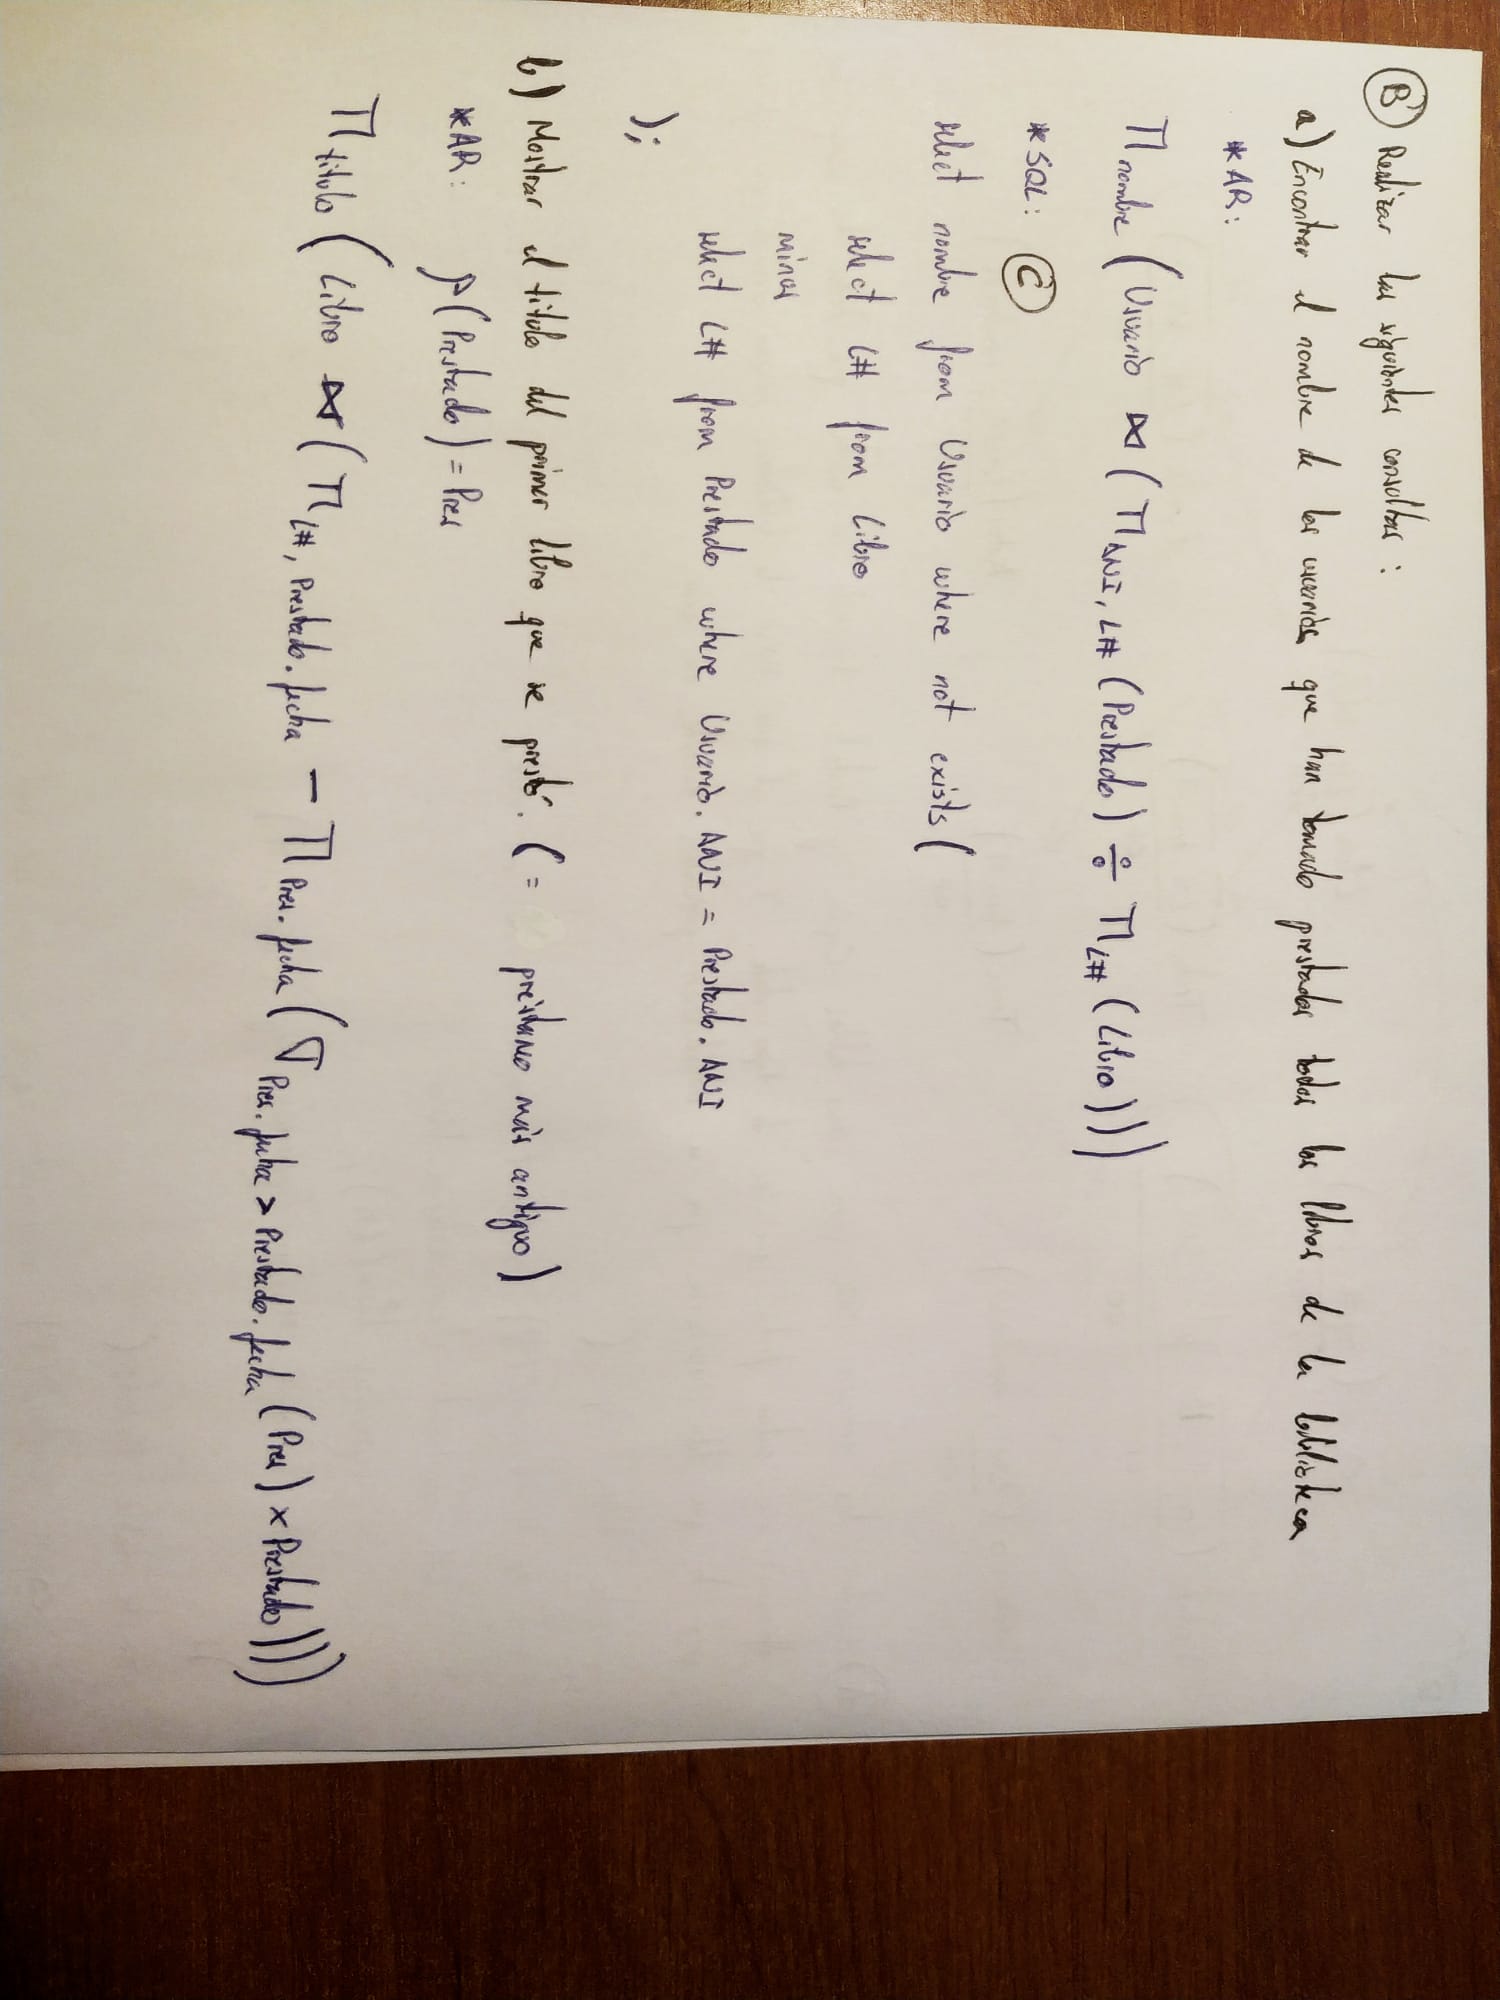 B Realizar las siguientes consultas:
a) Encontrar el nombre de los usuarios que han tomado prestados todos los libros de la biblioteca
*AR:
Π nombre (Usuario ⋈ (Π DNI, L# (Prestado) ÷ Π L# (Libro)))
*SQL: C
select nombre from Usuario where not exists (
select L# from Libro
minus
select L# from Prestado where Usuario.DNI = Prestado.DNI
);
b) Mostrar el titulo del primer libro que se prestó. (= préstamo más antiguo)
*AR: ρ(Prestado) = Pres
Π titulo (Libro ⋈ (Π L#, Prestado.fecha − Π Pres.fecha (σ Pres.fecha > Prestado.fecha (Pres) x Prestado))))